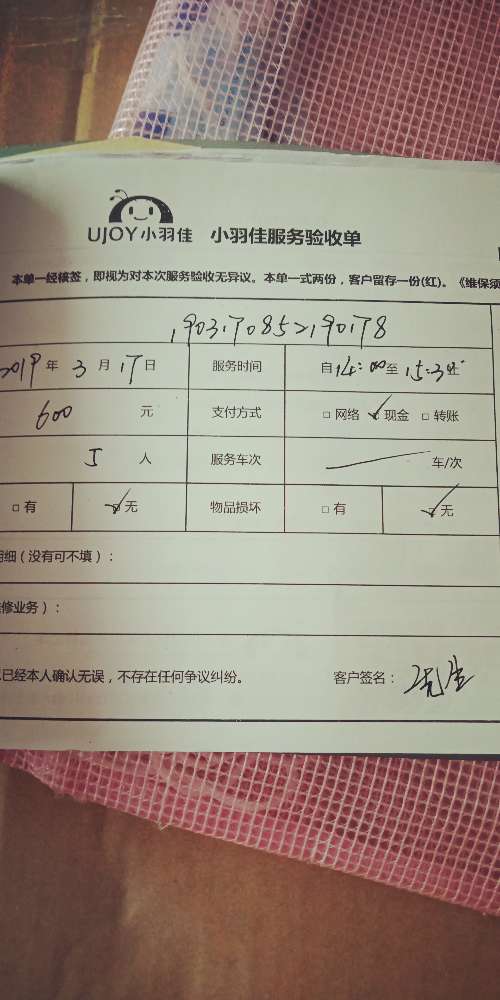 UJOY小羽佳 小羽佳服务验收单
本单一经核签，即视为对本次服务验收无异议。本单一式两份，客户留存一份(红)。《维保须
1903170852190178
2019年3月17日 服务时间 自14:00至15:30止
600元 支付方式 □网络 ☑现金 □转账
人 服务车次 车/次
□有 ☑无 物品损坏 □有 ☑无
明细（没有可不填）：
修业务）：
已经本人确认无误，不存在任何争议纠纷。 客户签名： 先生